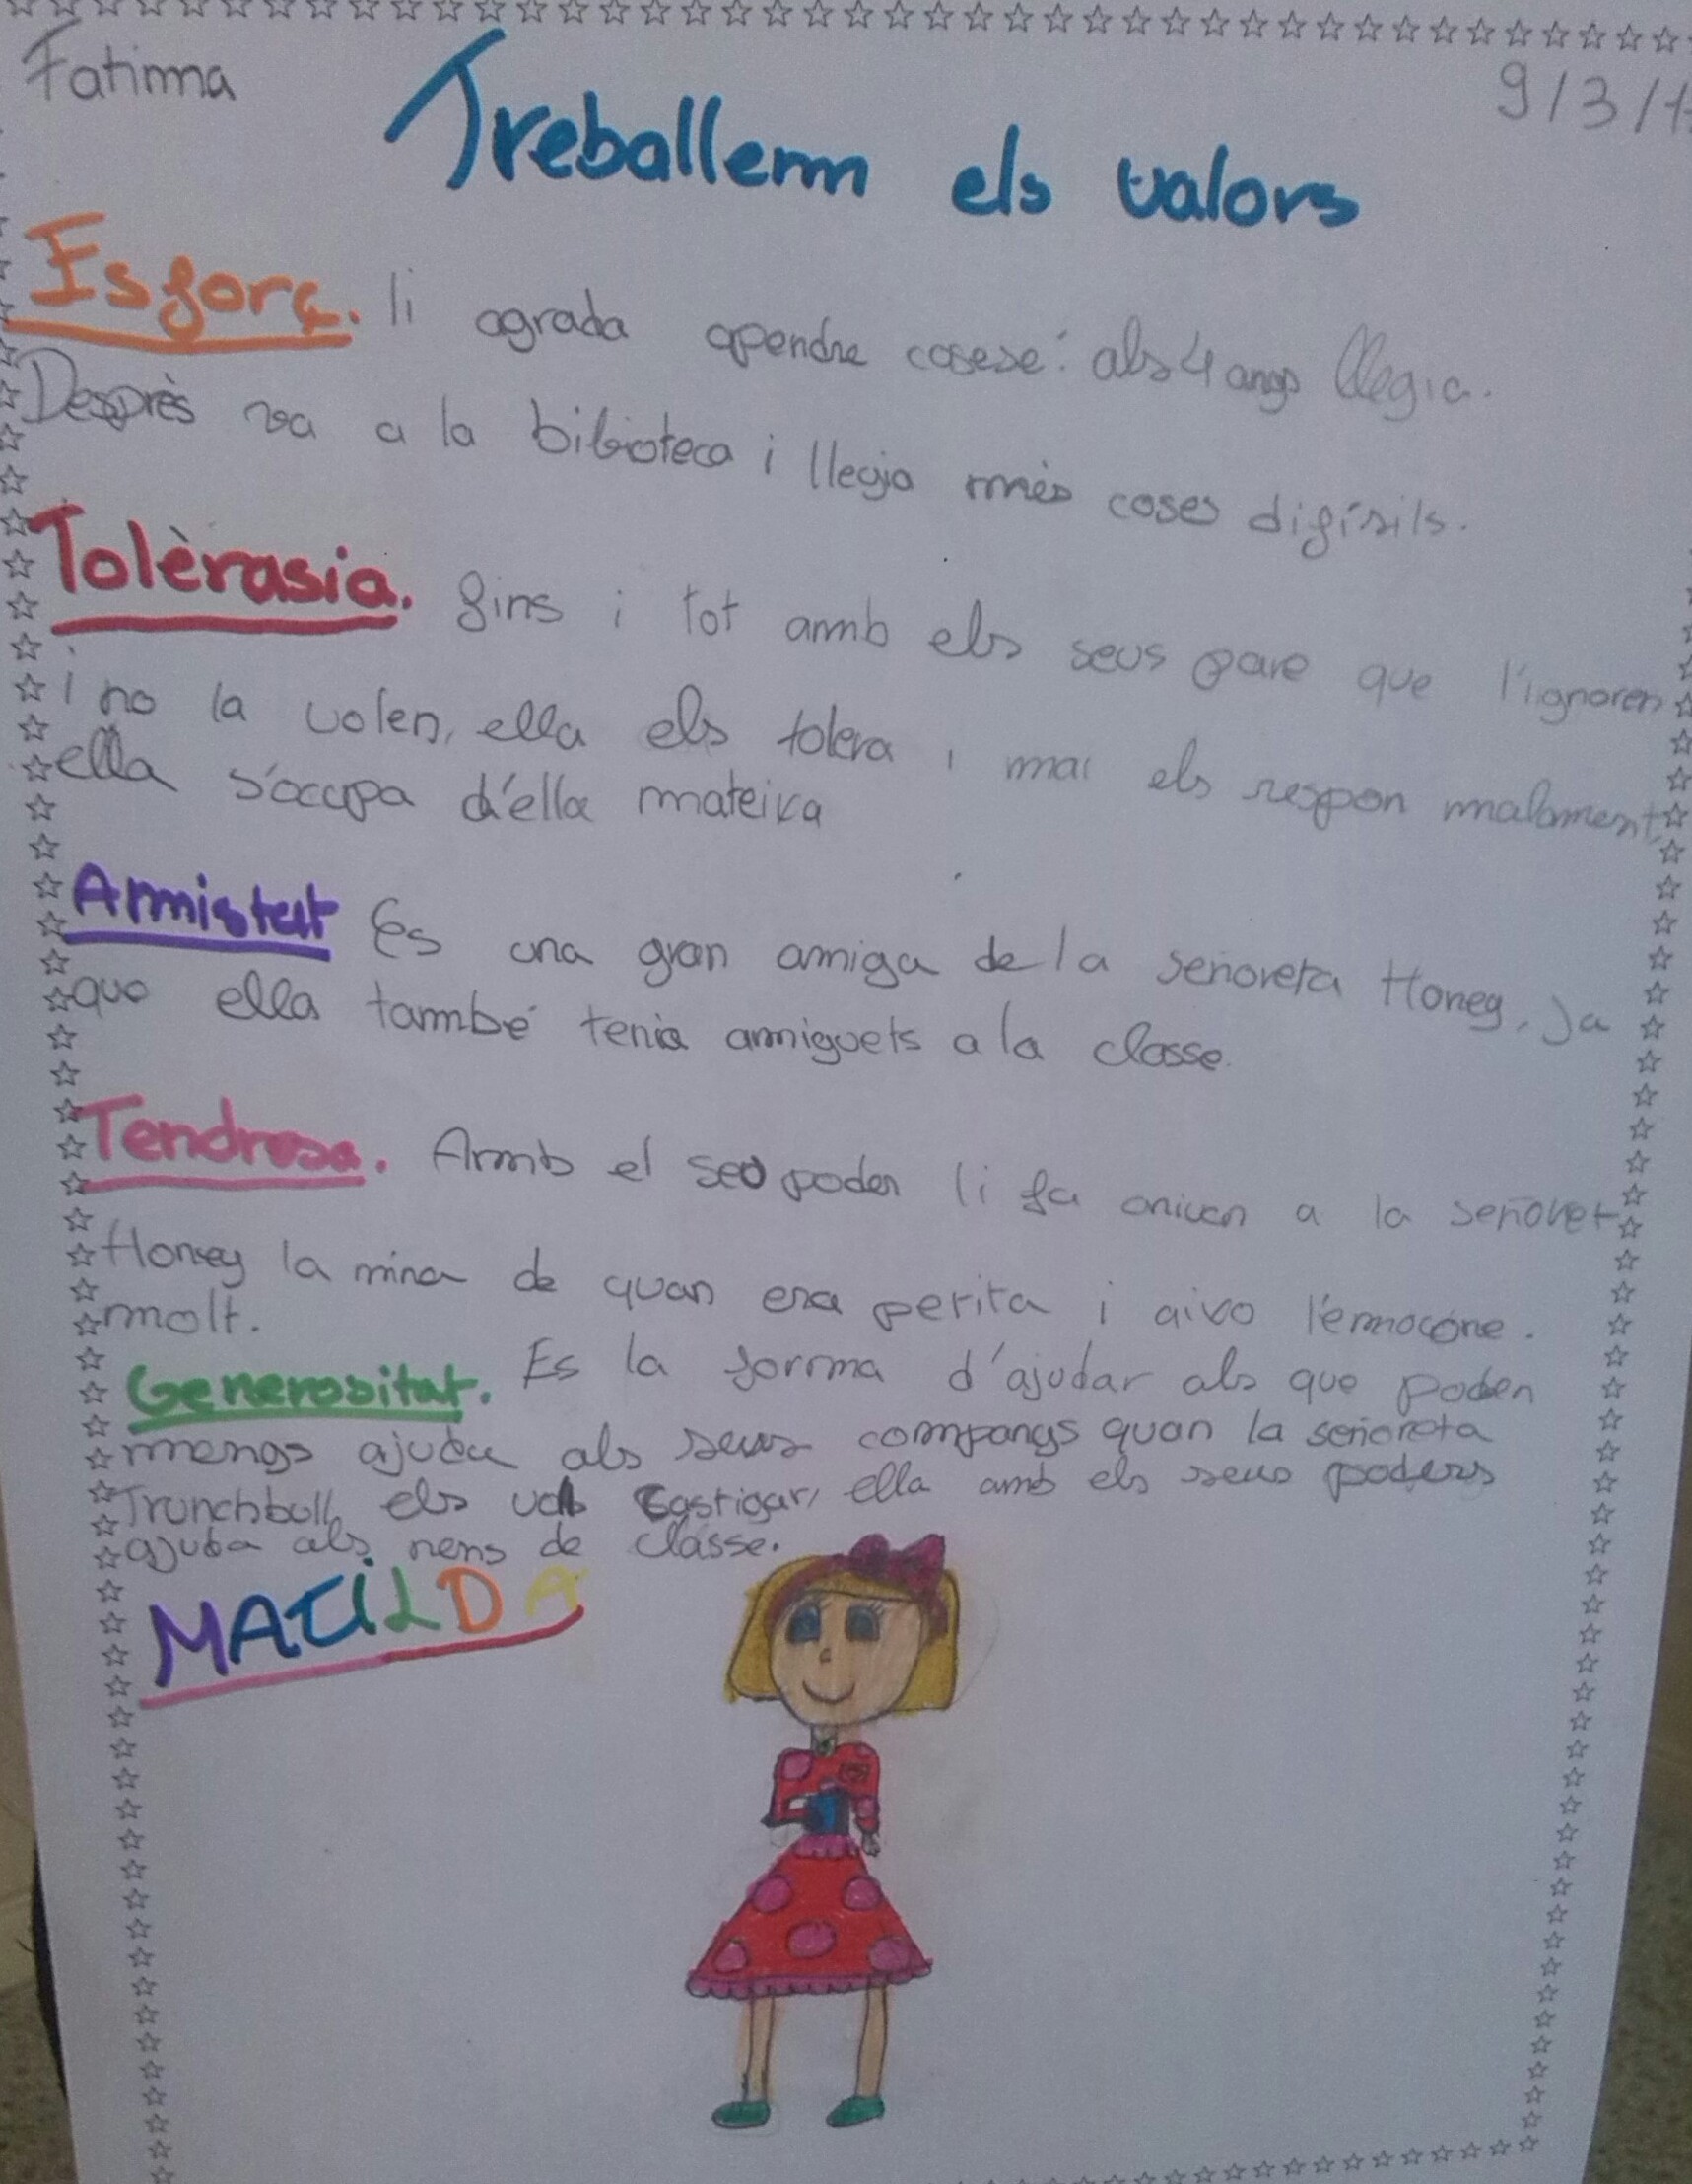 Fatima
9/3/1
Treballem els valors
Esforç. li agrada apendre cosese: als 4 angs llegia.
Desprès va a la biblioteca i llegia més coses difísils.
Tolèrasia. fins i tot amb els seus pare que l'ignoren
i no la volen, ella els tolera i mai els respon malament,
ella s'ocupa d'ella mateixa
Amistat Es una gran amiga de la señoreta Honey, Ja
que ella també tenia amiguets a la classe.
Tendresa. Amb el seu poder li fa arriven a la señoret
Honey la nina de quan era petita i aixo l'emocone.
molt.
Generositat. Es la forma d'ajudar als que poden
mengs ajuda als seus compangs quan la señoreta
Trunchbull els vol castigar, ella amb els seus poders
ajuda als nens de classe.
MATiLDA